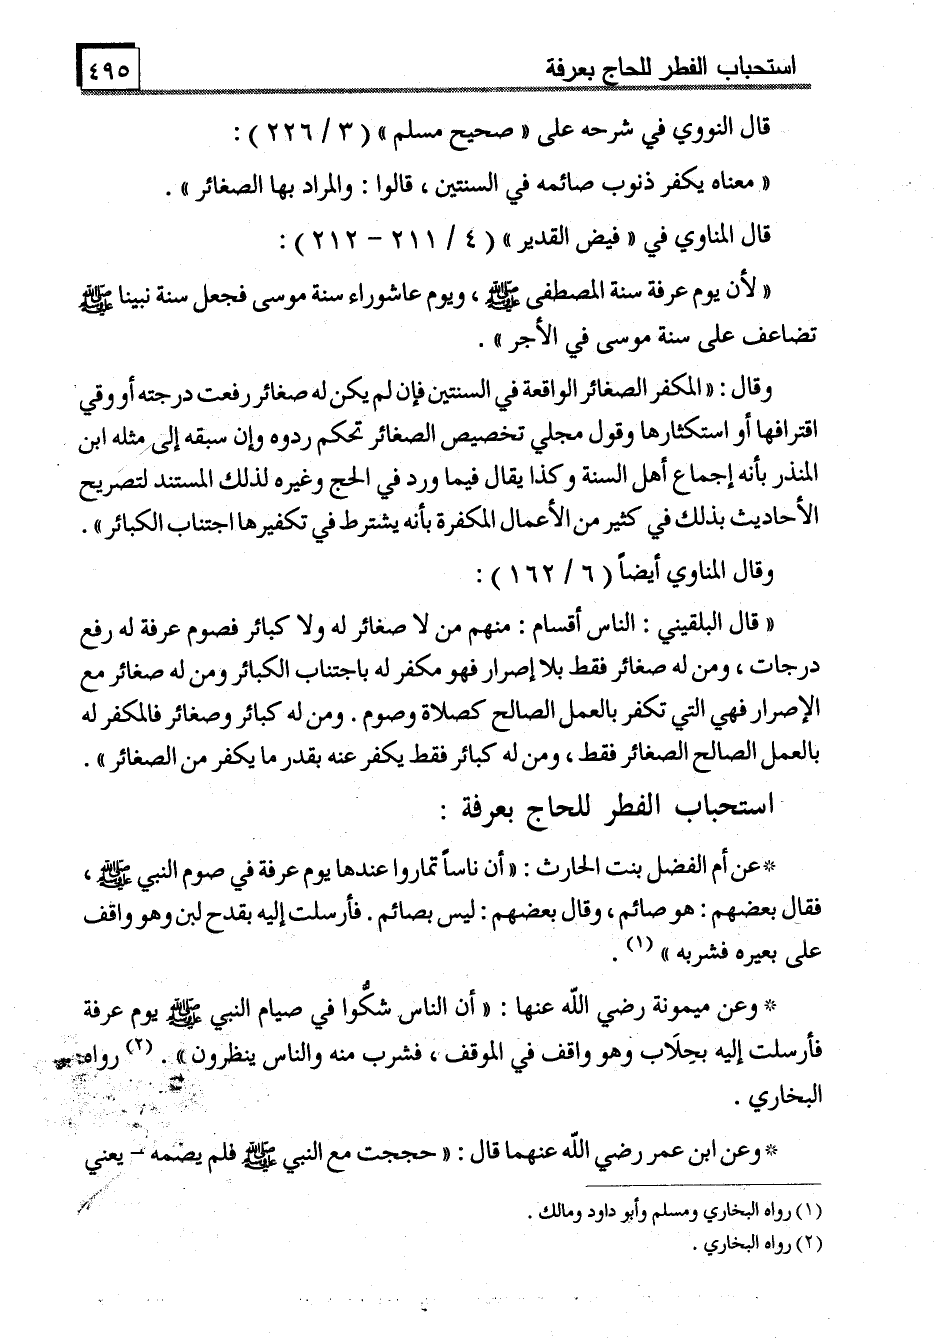 استحباب الفطر للحاج بعرفة
٤٩٥
قال النووي في شرحه على « صحيح مسلم » ( ٣ / ٢٢٦ ) :
« معناه يكفر ذنوب صائمه في السنتين ، قالوا : والمراد بها الصغائر » .
قال المناوي في « فيض القدير » ( ٤ / ٢١١ – ٢١٢ ) :
« لأن يوم عرفة سنة المصطفى ﷺ ، ويوم عاشوراء سنة موسى فجعل سنة نبينا ﷺ
تضاعف على سنة موسى في الأجر » .
وقال : « المكفر الصغائر الواقعة في السنتين فإن لم يكن له صغائر رفعت درجته أو وقي
اقترافها أو استكثارها وقول مجلي تخصيص الصغائر تحكم ردوه وإن سبقه إلى مثله ابن
المنذر بأنه إجماع أهل السنة وكذا يقال فيما ورد في الحج وغيره لذلك المستند لتصريح
الأحاديث بذلك في كثير من الأعمال المكفرة بأنه يشترط في تكفيرها اجتناب الكبائر » .
وقال المناوي أيضاً ( ٦ / ١٦٢ ) :
« قال البلقيني : الناس أقسام : منهم من لا صغائر له ولا كبائر فصوم عرفة له رفع
درجات ، ومن له صغائر فقط بلا إصرار فهو مكفر له باجتناب الكبائر ومن له صغائر مع
الإصرار فهي التي تكفر بالعمل الصالح كصلاة وصوم . ومن له كبائر وصغائر فالمكفر له
بالعمل الصالح الصغائر فقط ، ومن له كبائر فقط يكفر عنه بقدر ما يكفر من الصغائر » .
استحباب الفطر للحاج بعرفة :
*عن أم الفضل بنت الحارث : « أن ناساً تماروا عندها يوم عرفة في صوم النبي ﷺ ،
فقال بعضهم : هو صائم ، وقال بعضهم : ليس بصائم . فأرسلت إليه بقدح لبن وهو واقف
على بعيره فشربه » (١) .
* وعن ميمونة رضي الله عنها : « أن الناس شكُّوا في صيام النبي ﷺ يوم عرفة
فأرسلت إليه بحِلَاب وهو واقف في الموقف ، فشرب منه والناس ينظرون » . (٢) رواه
البخاري .
*وعن ابن عمر رضي الله عنهما قال : « حججت مع النبي ﷺ فلم يصمه – يعني
(١) رواه البخاري ومسلم وأبو داود ومالك .
(٢) رواه البخاري .